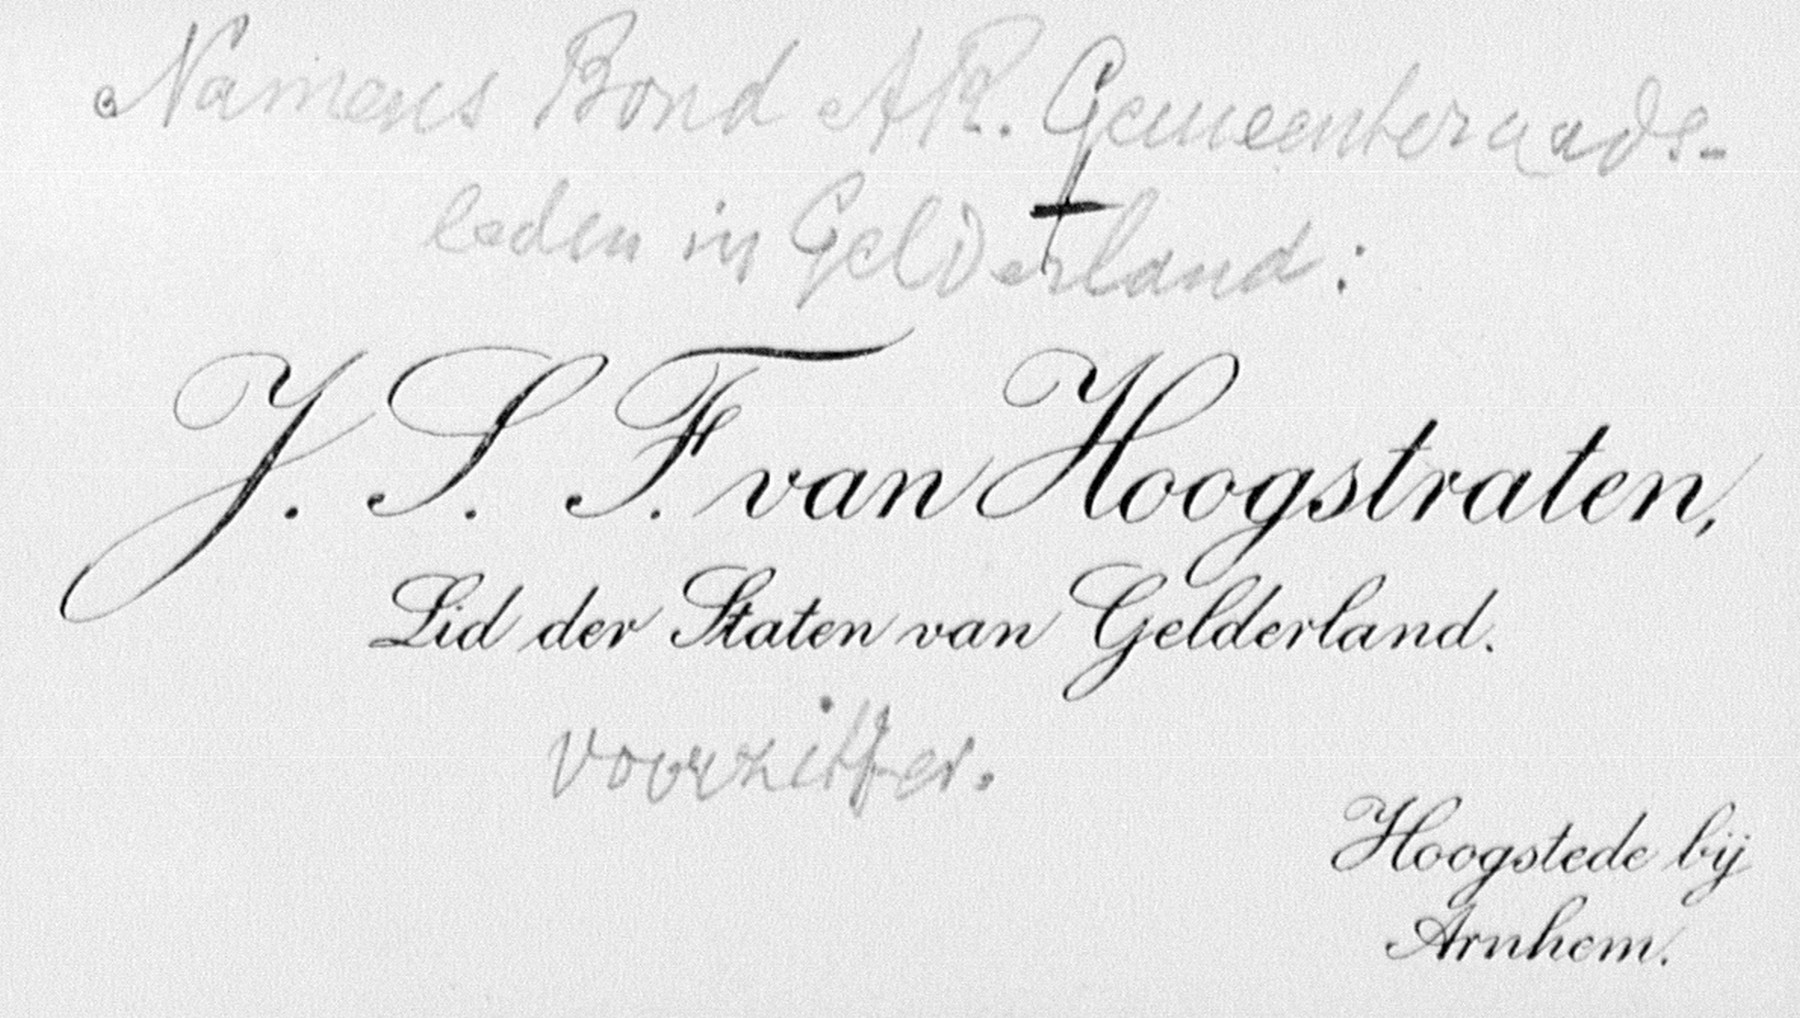 Namens Bond A.R. Gemeenteraads-
leden in Gelderland:
J. S. F. van Hoogstraten,
Lid der Staten van Gelderland.
voorzitter.
Hoogstede bij
Arnhem.